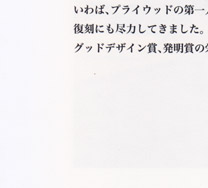 いわば、プライウッドの第一
復刻にも尽力してきました。
グッドデザイン賞、発明賞の